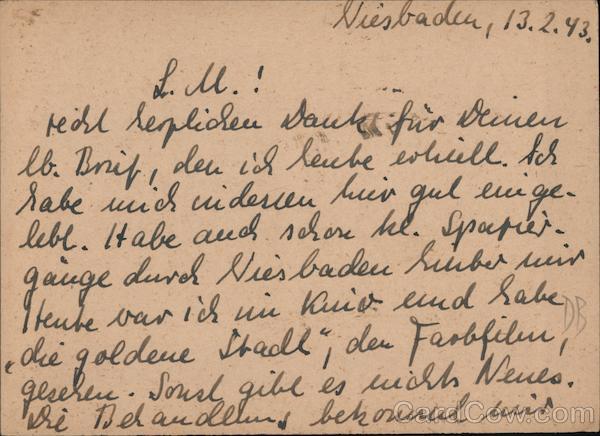 Wiesbaden, 13.2.43.
L. M.!
recht herzlichen Dank für Deinen
lb. Brief, den ich heute erhielt. Ich
habe mich indessen hier gut einge-
lebt. Habe auch schon kl. Spazier-
gänge durch Wiesbaden hinter mir
Heute war ich im Kino und habe
DB
„die goldene Stadt", den Farbfilm,
gesehen. Sonst gibt es nichts Neues.
Die Behandlung bekommt mir
CardCow.com